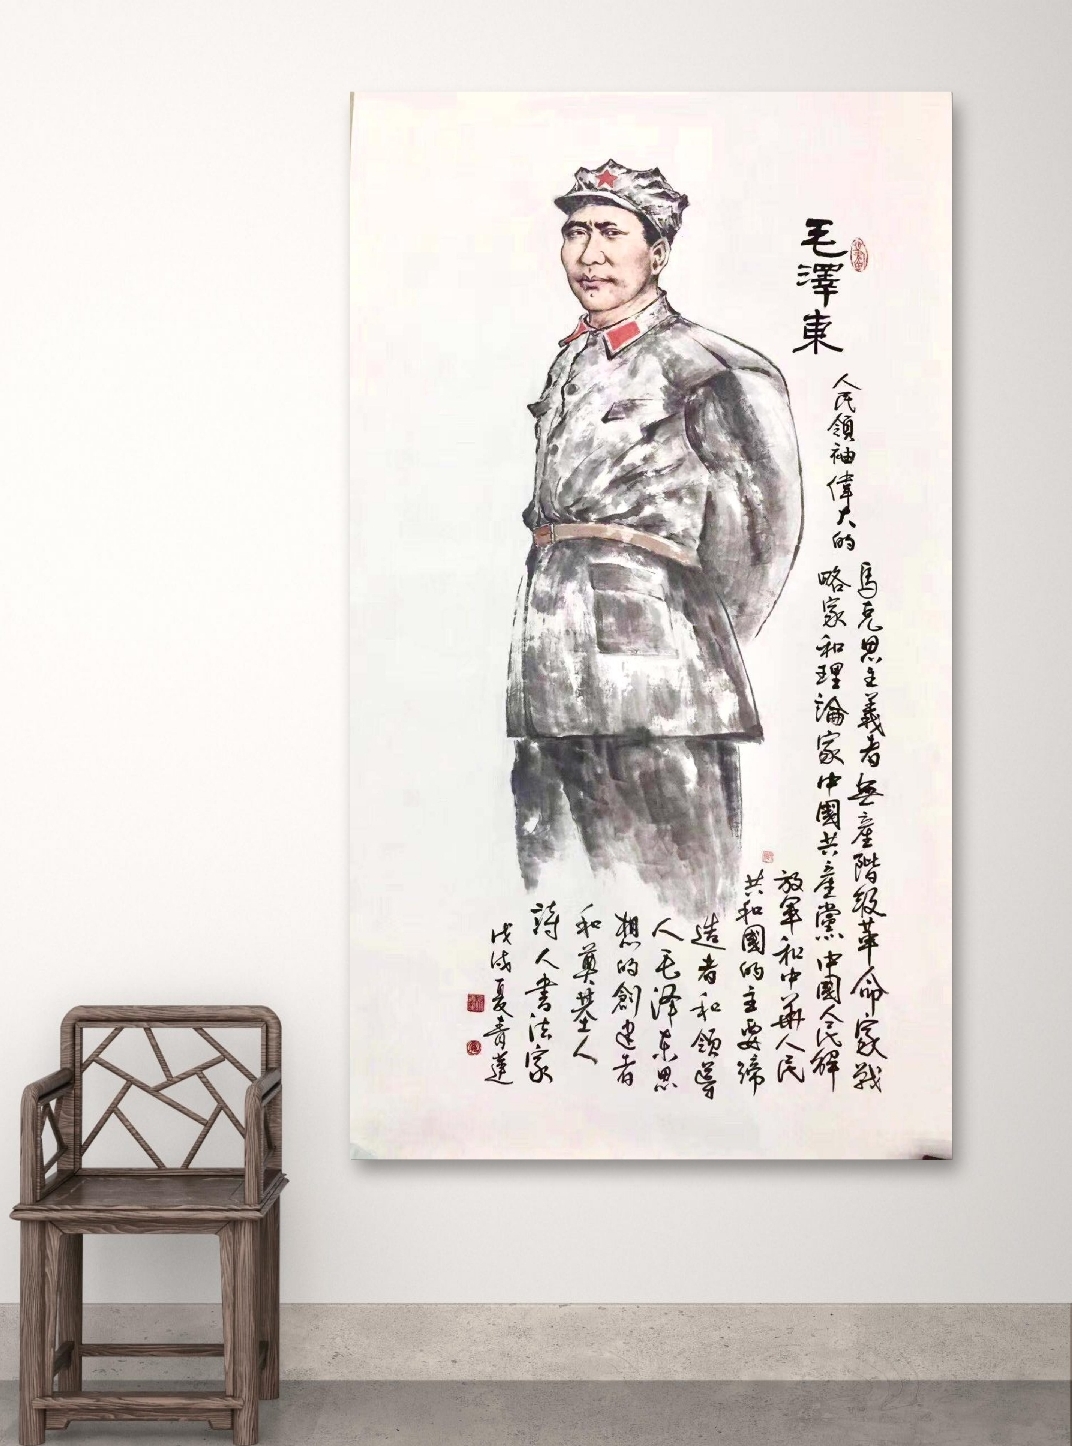 毛澤東
人民領袖偉大的
馬克思主義者無產階級革命家戰
略家和理論家中國共產黨中國人民解
放軍和中華人民
共和國的主要締
造者和領導
人毛泽东思
想的創建者
和奠基人
詩人書法家
戊戌夏青蓮